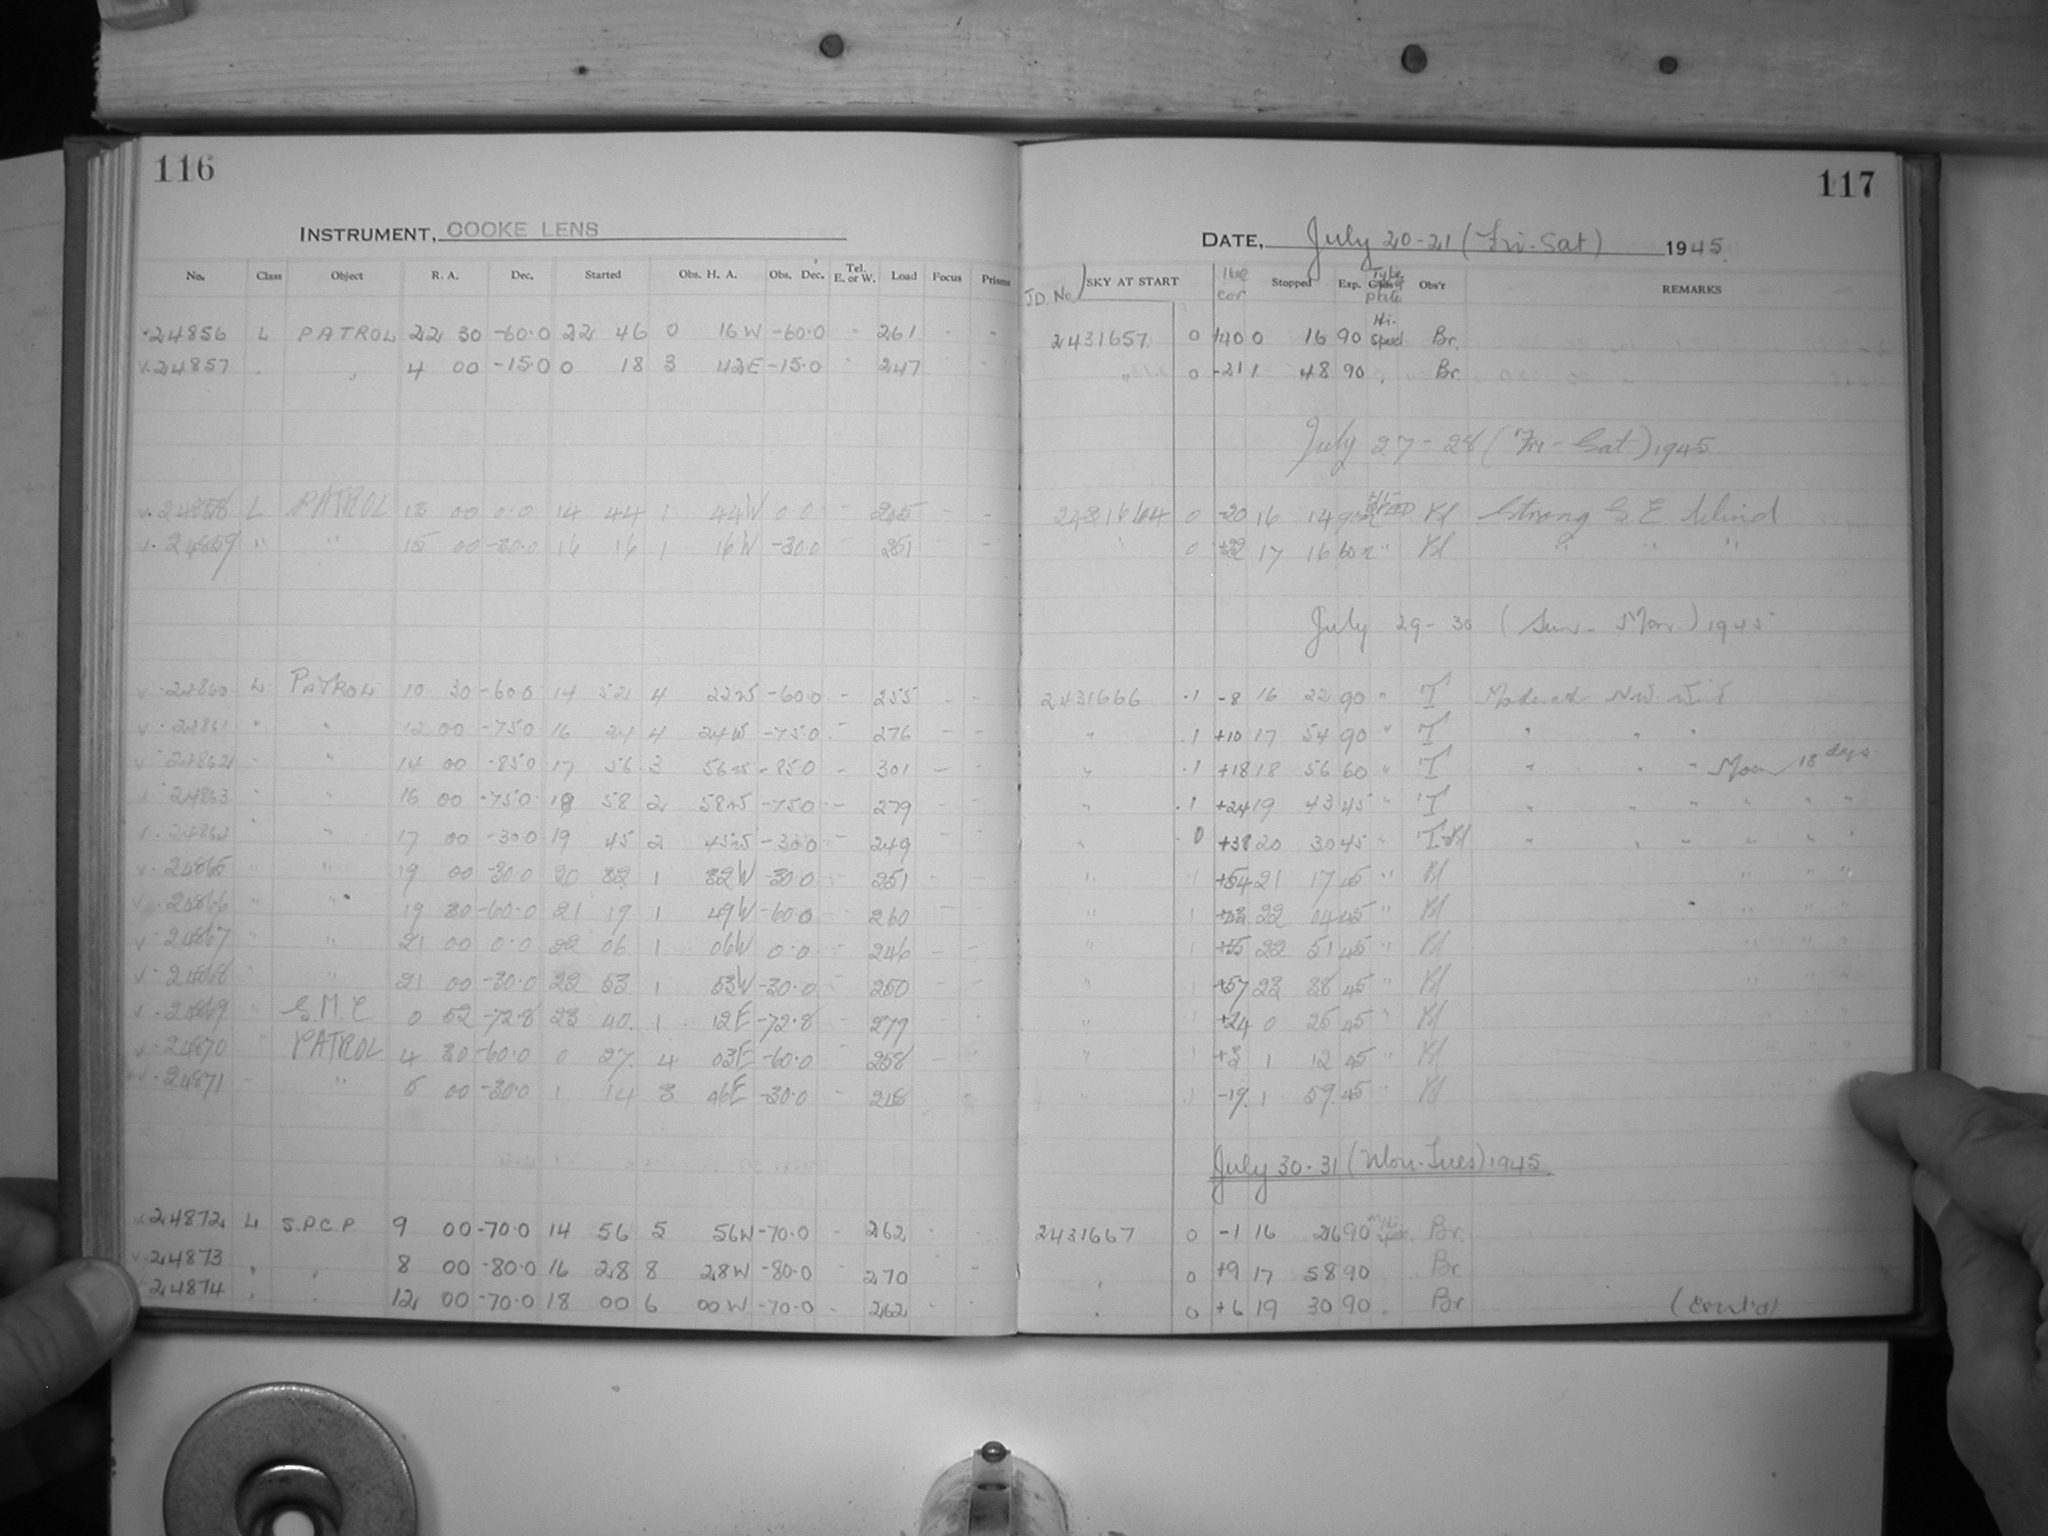 116
INSTRUMENT, COOKE LENS
No. Class Object R. A. Dec. Started Obs. H. A. Obs. Dec. Tel. E. or W. Load Focus Prisms
24856 L PATROL 22 30 -60.0 22 46 0 16W -60.0 - 261 - -
v.24857 . , 4 00 -15.0 0 18 3 42E -15.0 - 247 - -
v.24858 L PATROL 13 00 0.0 14 44 1 44W 0.0 - 245 - -
v.24859 " " 15 00 -30.0 16 16 1 16W -30.0 - 251 - -
v.24860 L PATROL 10 30 -60.0 14 52 4 22W -60.0 - 255 - -
v.24861 " " 12 00 -75.0 16 24 4 24W -75.0 - 276 - -
v.24862 " " 14 00 -85.0 17 56 3 56W -85.0 - 301 - -
v.24863 " " 16 00 -75.0 18 58 2 58W -75.0 - 279 - -
v.24864 " " 17 00 -30.0 19 45 2 45W -30.0 - 249 - -
v.24865 " " 19 00 -30.0 20 32 1 32W -30.0 - 251 - -
v.24866 " " 19 30 -60.0 21 19 1 49W -60.0 - 260 - -
v.24867 " " 21 00 0.0 22 06 1 06W 0.0 - 246 - -
v.24868 " " 21 00 -30.0 22 53 1 53W -30.0 - 250 - -
v.24869 " S.M.C 0 52 -72.8 23 40 1 12E -72.8 - 279 - -
v.24870 " PATROL 4 30 -60.0 0 27 4 03E -60.0 - 258 - -
v.24871 " " 5 00 -30.0 1 14 3 46E -30.0 - 248 - -
v.24872 L S.P.C.P. 9 00 -70.0 14 56 5 56W -70.0 - 262 - -
v.24873 , , 8 00 -80.0 16 28 8 28W -80.0 - 270 - -
v.24874 , , 12 00 -70.0 18 00 6 00W -70.0 - 262 - -
117
DATE, July 20-21 (Fri-Sat) 1945.
J.D. No. SKY AT START cor Stopped Exp. Type plate Obs'r REMARKS
2431657 0 +40 0 16 90 Hi-speed Br.
" 0 -21 1 48 90 , Br.
July 27-28 (Fri-Sat) 1945
2431664 0 -20 16 14 90 Kl Strong S.E. Wind
" 0 +22 17 16 60 " Kl " " "
July 29-30 (Sun-Mon.) 1945
2431666 .1 -8 16 22 90 " T Moderate NW wind
" .1 +10 17 54 90 " T " " "
" .1 +18 18 56 60 " T " " " Moon 18 days
" .1 +24 19 43 45 " T " " " " " "
" .0 +38 20 30 45 " T-Kl " " " " " "
" 1 +54 21 17 45 " Kl " " "
" 1 22 04 45 " Kl " " "
" 1 +55 22 51 45 " Kl " " "
" 1 +57 23 38 45 " Kl " " "
" 1 +24 0 25 45 " Kl " " "
" 1 +3 1 12 45 " Kl " " "
" .1 -19 1 59 45 " Kl " " "
July 30-31 (Mon-Tues) 1945.
2431667 0 -1 16 26 90 Br.
, 0 +9 17 58 90 Br.
, 0 +6 19 30 90 , Br
(cont'd)